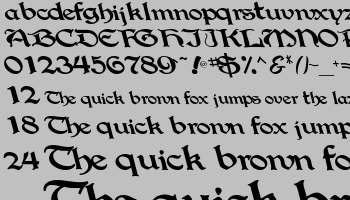 abcdefghijklmnopqrstuvwxyz
ABCDEFGHIJKLMNO
0123456789
12 The quick brown fox jumps over the la
18 The quick brown fox jump
24 The quick brown
The quick br